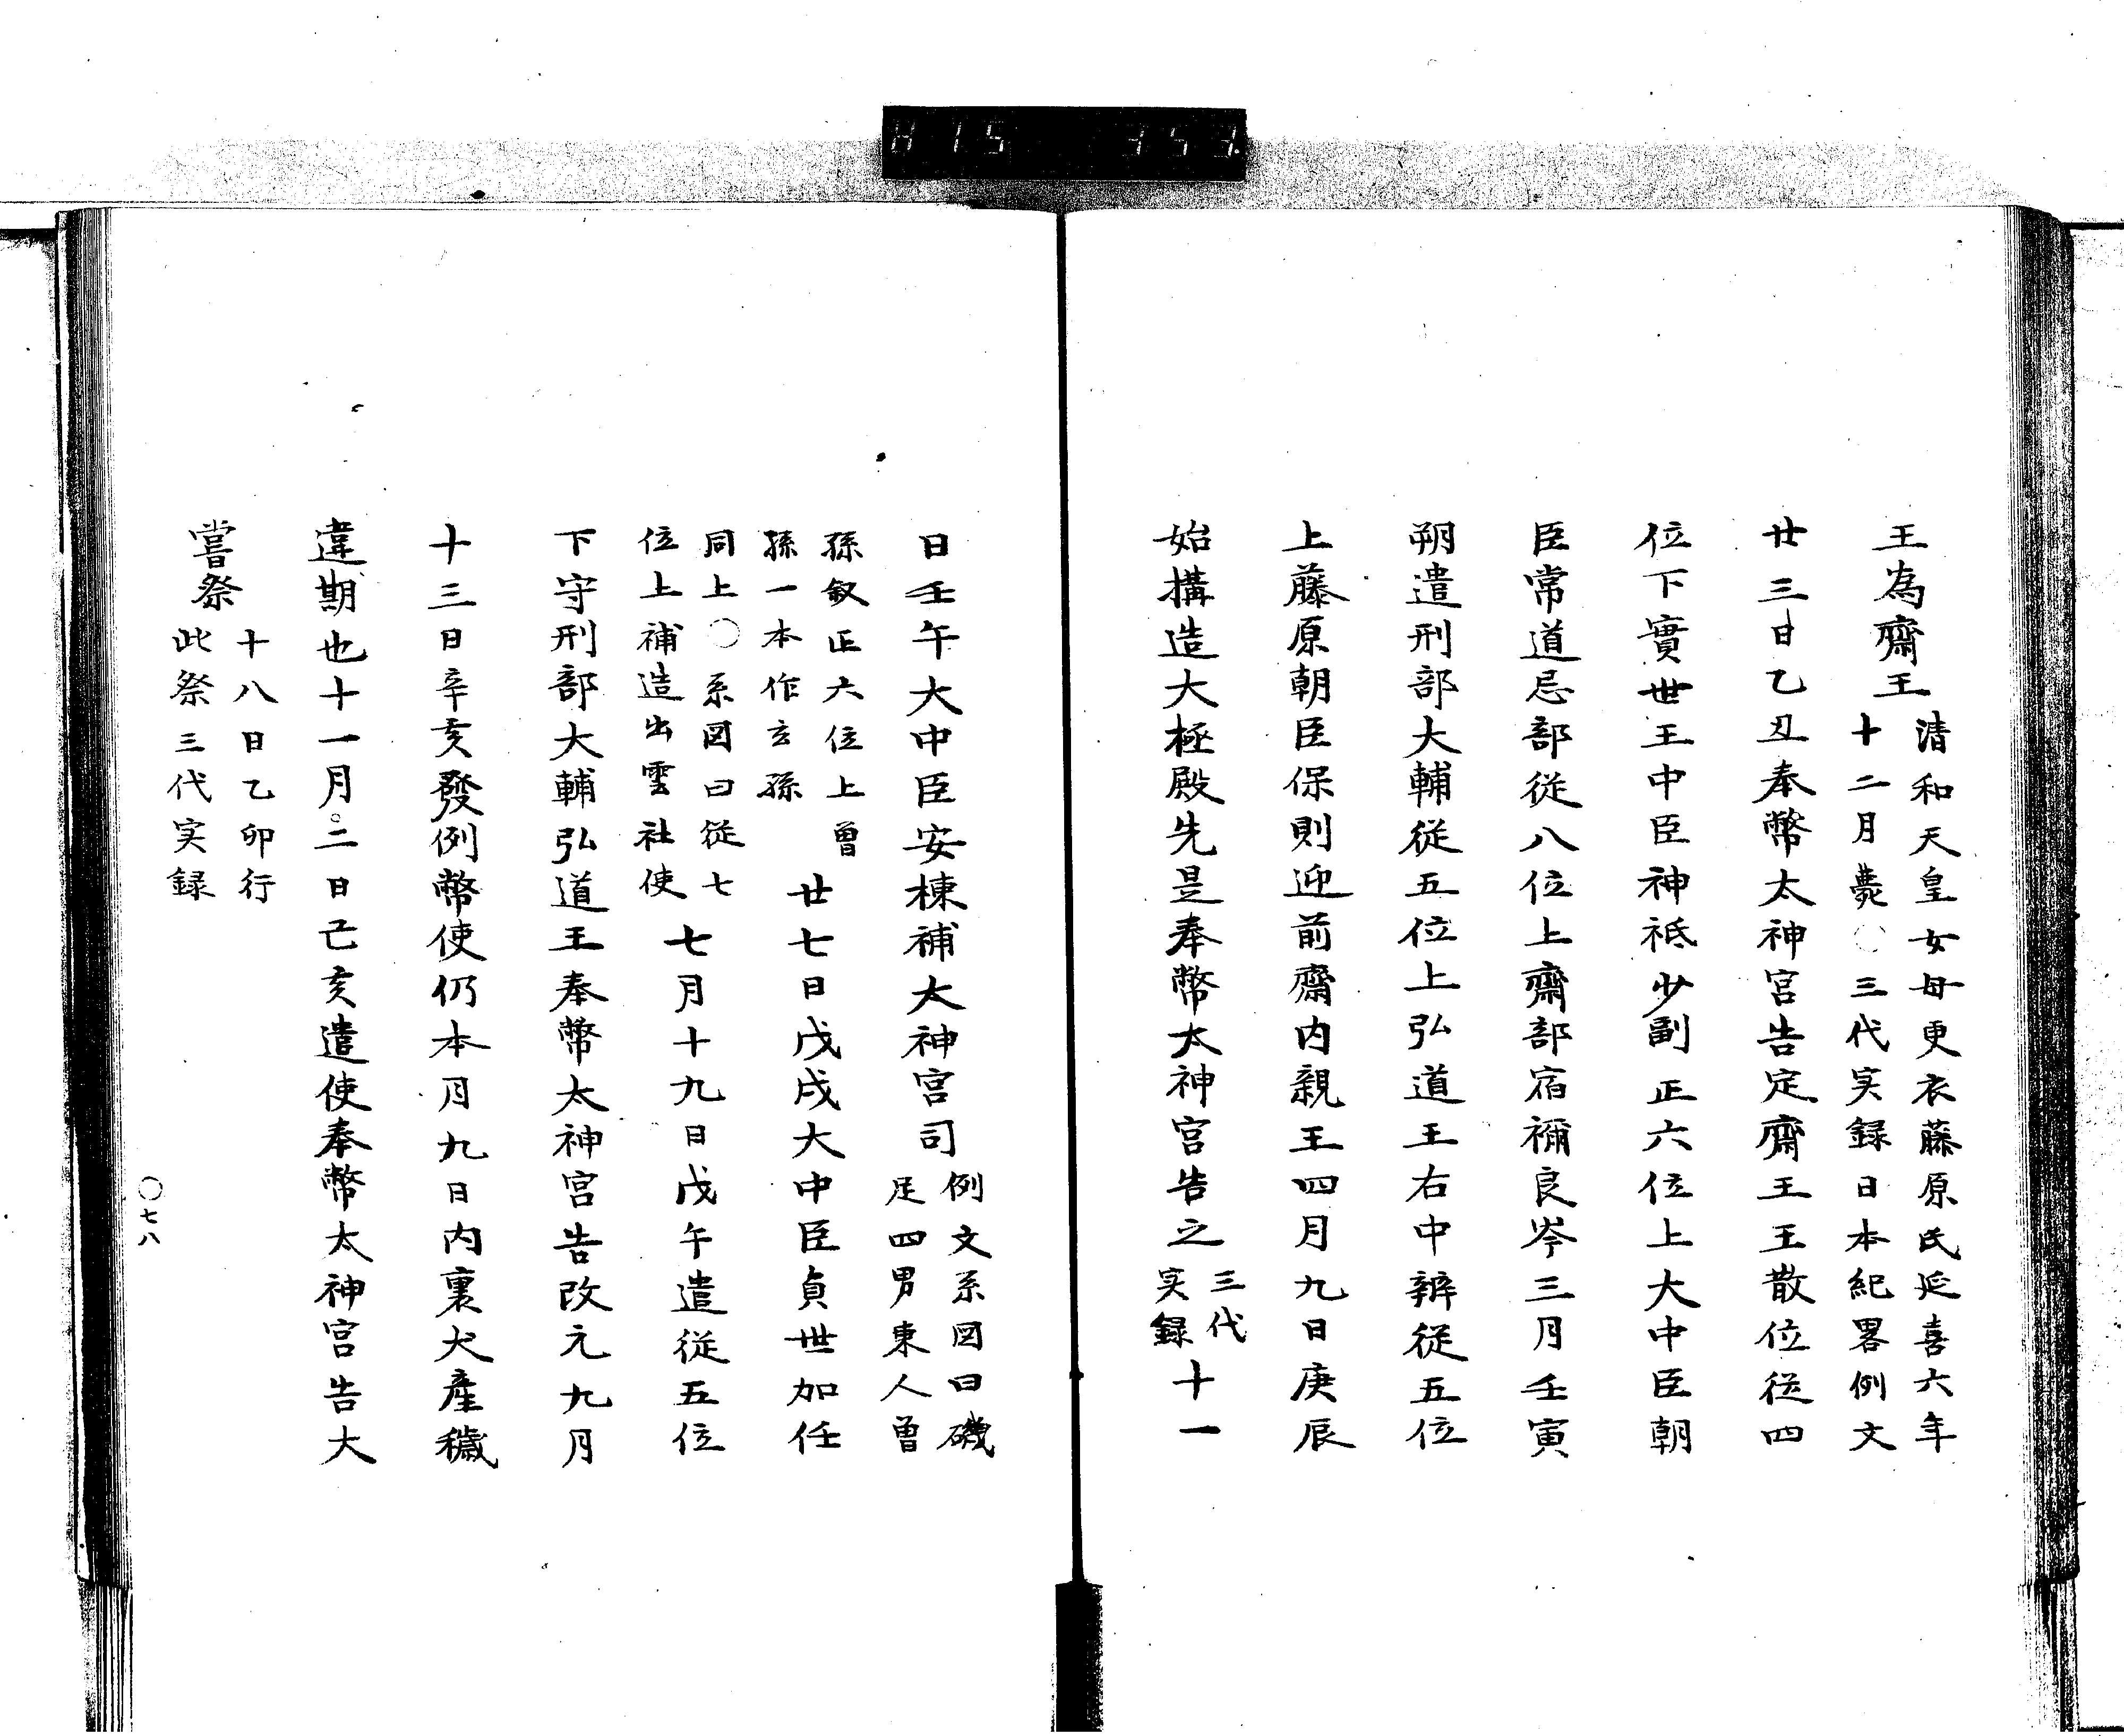 王為齋王 清和天皇女母更衣藤原氏延喜六年
十二月薨〇三代実録日本紀畧例文
廿三日乙丑奉幣太神宮告定齋王王散位從四
位下實世王中臣神祇少副正六位上大中臣朝
臣常道忌部從八位上齋部宿祢良岑三月壬寅
朔遣刑部大輔從五位上弘道王右中辨從五位
上藤原朝臣保則迎前齋内親王四月九日庚辰
始搆造大極殿先是奉幣太神宮告之 三代
実録 十一
日壬午大中臣安棟補太神宮司 例文系図曰磯
足四男東人曽
孫叙正六位上曽
孫一本作玄孫 廿七日戊戌大中臣貞世加任
同上〇系図曰從七
位上補造出雲社使 七月十九日戊午遣從五位
下守刑部大輔弘道王奉幣太神宮告改元九月
十三日辛亥發例幣使仍本月九日内裏犬産穢
違期也十一月二日己亥遣使奉幣太神宮告大
嘗祭 十八日乙卯行
此祭三代実録
〇七八
815 353